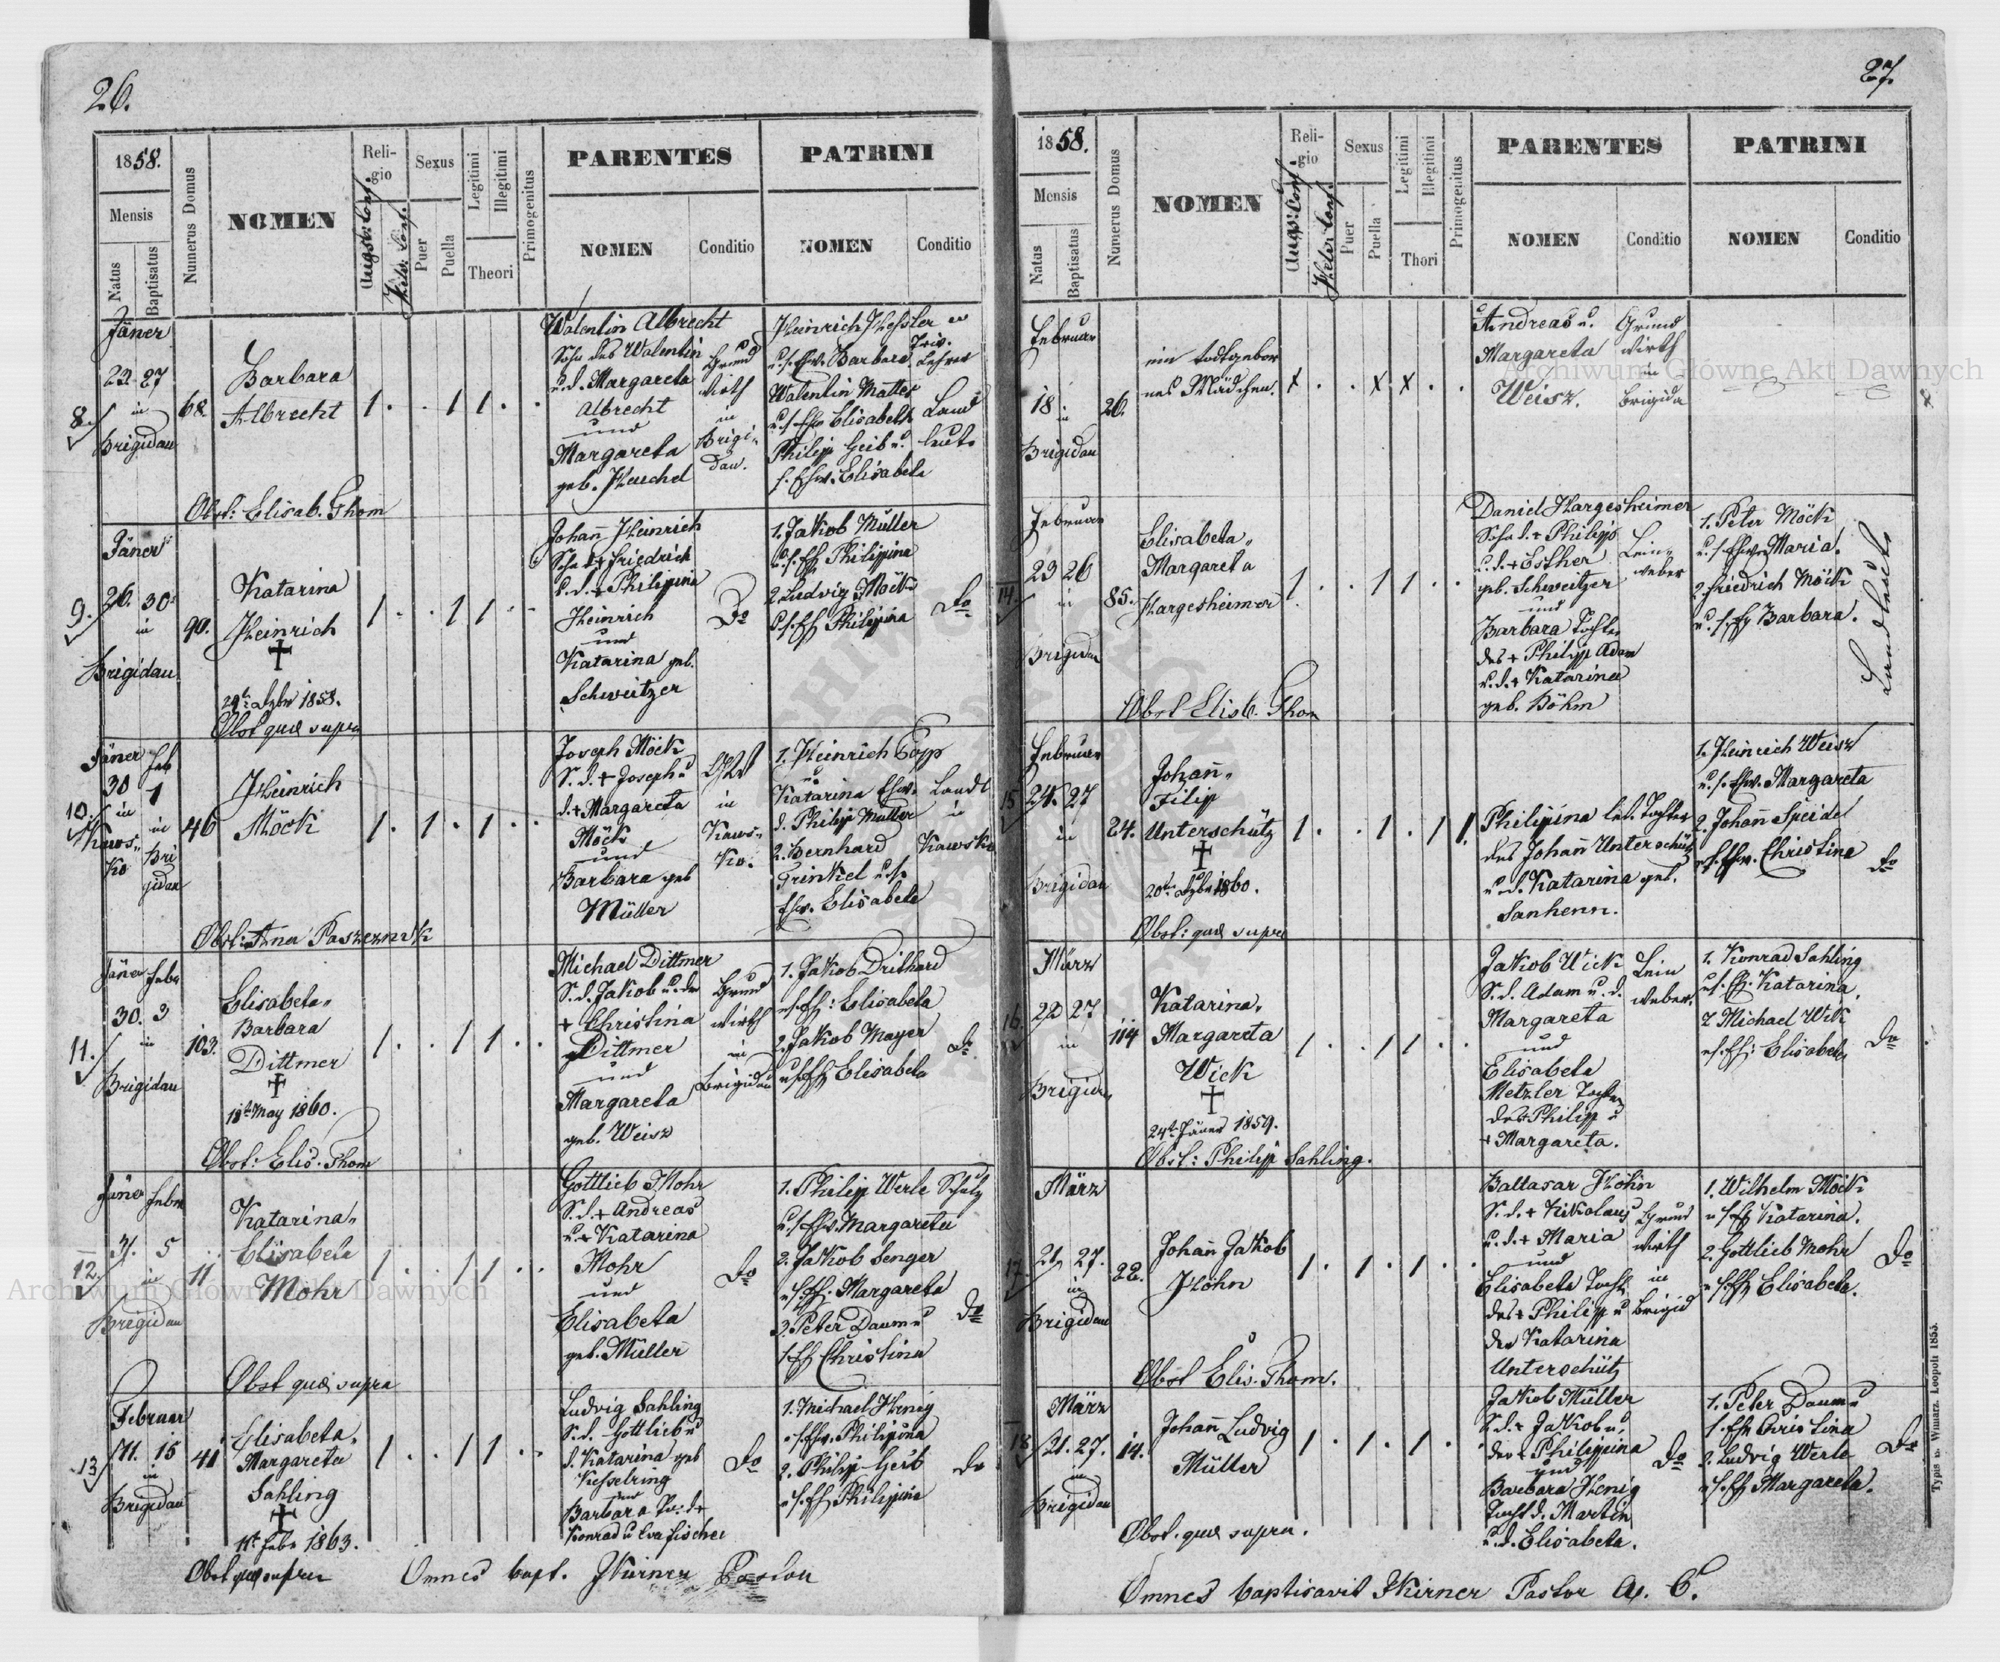 26.
1858.
Mensis
Natus
Baptisatus
Numerus Domus
NOMEN
Religio
Augsb: Conf.
Helv. Conf.
Sexus
Puer
Puella
Legitimi
Illegitimi
Theori
Primogenitus
PARENTES
NOMEN
Conditio
PATRINI
NOMEN
Conditio
Jäner
22 27
in
Brigidau
8.
68.
Barbara
Albrecht
Walentin Albrecht
Sohn des Walentin
u. d. Margareta
Albrecht
und
Margareta
geb.
Grund
wirth
in
Brigi-
dau.
u. s. Ehw. Barbara
Walentin Mattes
u. s. Ehw. Elisabeth
Philip Geib u.
s. Ehw. Elisabeta
Land
leute
Obst: Elisab. Thom
Jäner
26. 30.
in
Brigidau
9.
90.
Katarina
Heinrich
29t Dzbr 1858.
Obst quæ supra
Johann Heinrich
Sohn d + Friedrich
u. d. + Philippina
Heinrich
und
Katarina geb.
Schweitzer
Do
1. Jakob Müller
u. s. Eh Philippina
2. Ludwig Möck
u. s. Eh Philippina
Do
Jäner Feb
30 1
in in
Kaws-
ko
Bri
gidau
10.
46
Heinrich
Möck
Joseph Möck
S. d. + Joseph u
d. + Margareta
Möck
und
Barbara geb
Müller
in
Kaws-
ko.
1. Heinrich Popp
u
Katarina Ehw.
d. Philip Müller
2. Bernhard
Trinkel u. s.
Ehw. Elisabeta
Landl
in
Kawsko
Obst: Anna
Jäner Febr
30. 3
in
Brigidau
11.
103.
Elisabeta-
Barbara
Dittmer
18t May 1860.
Obst: Elis. Thom
Michael Dittmer
S. d. Jakob u. der
+ Christina
Dittmer
und
Margareta
geb. Weisz
Grund
wirth
in
Brigidau
1. Jakob Drithard
u. s. Eh: Elisabeta
2. Jakob Mayer
u. s. Eh Elisabeta
Do
Jäner Febr
31. 5
in
Brigidau
12.
11
Katarina-
Elisabeta
Mohr
Obst quæ supra
Gottlieb Mohr
S. d. + Andreas
u. + Katarina
Mohr
und
Elisabeta
geb. Müller
Do
1. Philip Werle Schulz
u. s. Ehw Margareta
2. Jakob Senger
u. s. Eh. Margareta
3. Peter Daum u
s. Eh Christina
Do
Februar
11. 15
in
Brigidau
13
41
Elisabeta-
Margareta
Sahling
1t Febr 1863.
Obst quæ supra
Ludvig Sahling
S. d. Gottlieb u
d. Katarina geb
Kesselring
und
Barbara To. d +
Konrad u Eva Fischer
Do
1. Michael Henig
u. s. Ehw. Philipina
2. Philip Geib
u. s. Eh Philipina
Do
Omnes bapt. Pastor
27.
1858.
Mensis
Natus
Baptisatus
Numerus Domus
NOMEN
Religio
Augsb: Conf.
Helv Conf.
Sexus
Puer
Puella
Legitimi
Illegitimi
Thori
Primogenitus
PARENTES
NOMEN
Conditio
PATRINI
NOMEN
Conditio
Februar
18
in
Brigidau
26.
ein todtgebor
nes Mädchen.
Andreas u.
Margareta
Weisz.
Grund
wirth
in
Brigida
Februar
23 26
in
Brigidau
14.
85.
Elisabeta-
Margareta
Hargesheimer
Obst Elisb. Thom
Daniel Hargesheimer
Sohn d. + Philipp
u. d. + Esther
geb. Schweitzer
und
Barbara Tochter
des + Philipp Adam
u. d. + Katarina
geb. Böhm
Lein-
weber
1. Peter Möck
u. s. Ehw Maria.
2. Friedrich Möck
u. s. Eh Barbara.
Landleute
Februar
24. 27
in
Brigidau
15
24.
Johann-
Filip
Unterschütz
20t Dzbr 1860.
Obst: quæ supra
Philipina led. Tochter
des Johann Unterschütz
u. d. Katarina geb.
Sanhenn.
1. Heinrich Weisz
u. s. Ehw. Margareta
2. Johann Speidel
u. s. Ehw. Christina
Do
März
22 27
in
Brigidau
16.
114
Katarina-
Margareta
Wick
24t Jäner 1859.
Obst: Philip Sahling.
Jakob Wick
S. d. Adam u. d.
Margareta
und
Elisabeta
Metzler Tochter
des + Philipp u
+ Margareta.
Lein
weber.
1. Konrad Sahling
u. s. Eh. Katarina.
2 Michael Wik
u. s. Eh: Elisabeta
Do
März
21. 27.
in
Brigidau
17
22.
Johann Jakob
Höhn
Obst Elis. Thom.
Baltasar Höhn
S. d. + Nikolaus
u. d. + Maria
und
Elisabeta Tocht
des + Philipp u
der Katarina
Unterschütz
Grund
wirth
in
Brigid
1. Wilhelm Möck
u. s. Eh Katarina.
2. Gottlieb Mohr
u. s. Eh Elisabeta.
Do
März
21. 27.
in
Brigidau
18
14.
Johann Ludvig
Müller
Obst. quæ supra.
Jakob Müller
S. d. + Jakob u.
der + Philippina
und
Barbara Henig
Tocht d. Martin
u. d. Elisabeta.
Do
1. Peter Daum u
s. Eh Christina
2. Ludvig Werle
u. s. Eh Margareta.
Do
Omnes baptisavit Pastor A. C.
Typis v. Winiarz. Leopoli 1855.
Archiwum Główne Akt Dawnych
Archiwum Główne Akt Dawnych